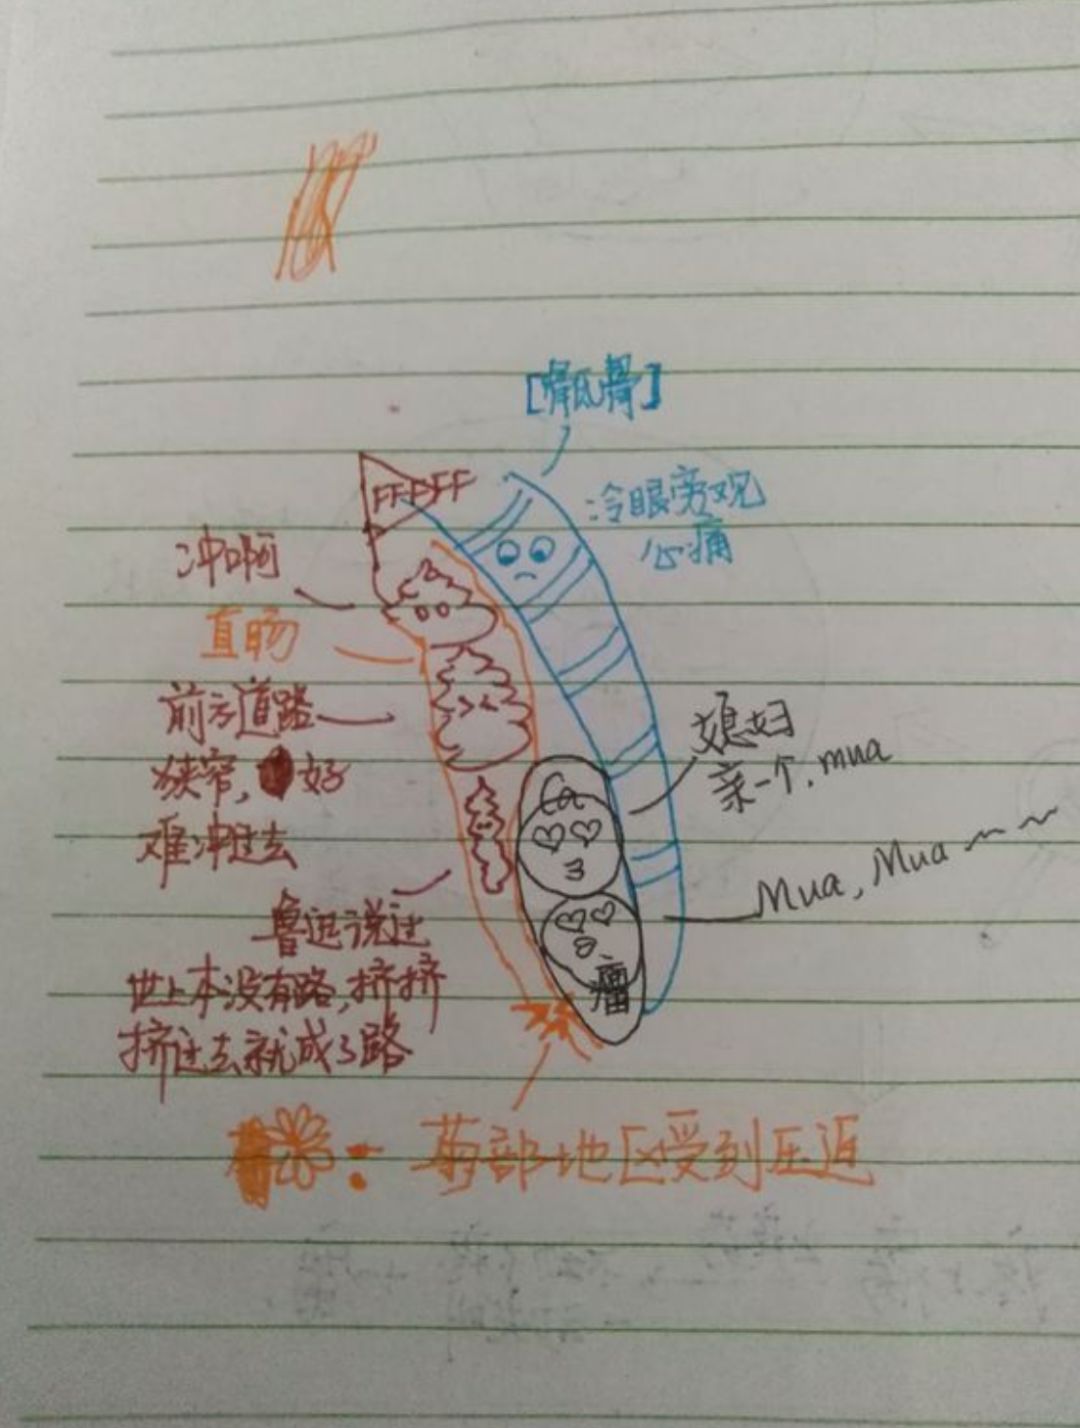 [骨氐骨]
FFFFFF
冷眼旁观
心痛
冲啊
直肠
前方道路
狭窄,好
难冲过去
媳妇
亲一个.mua
Mua,Mua~~
鲁迅说过
世上本没有路,挤挤
挤过去就成了路
瘤
:菊部地区受到压迫